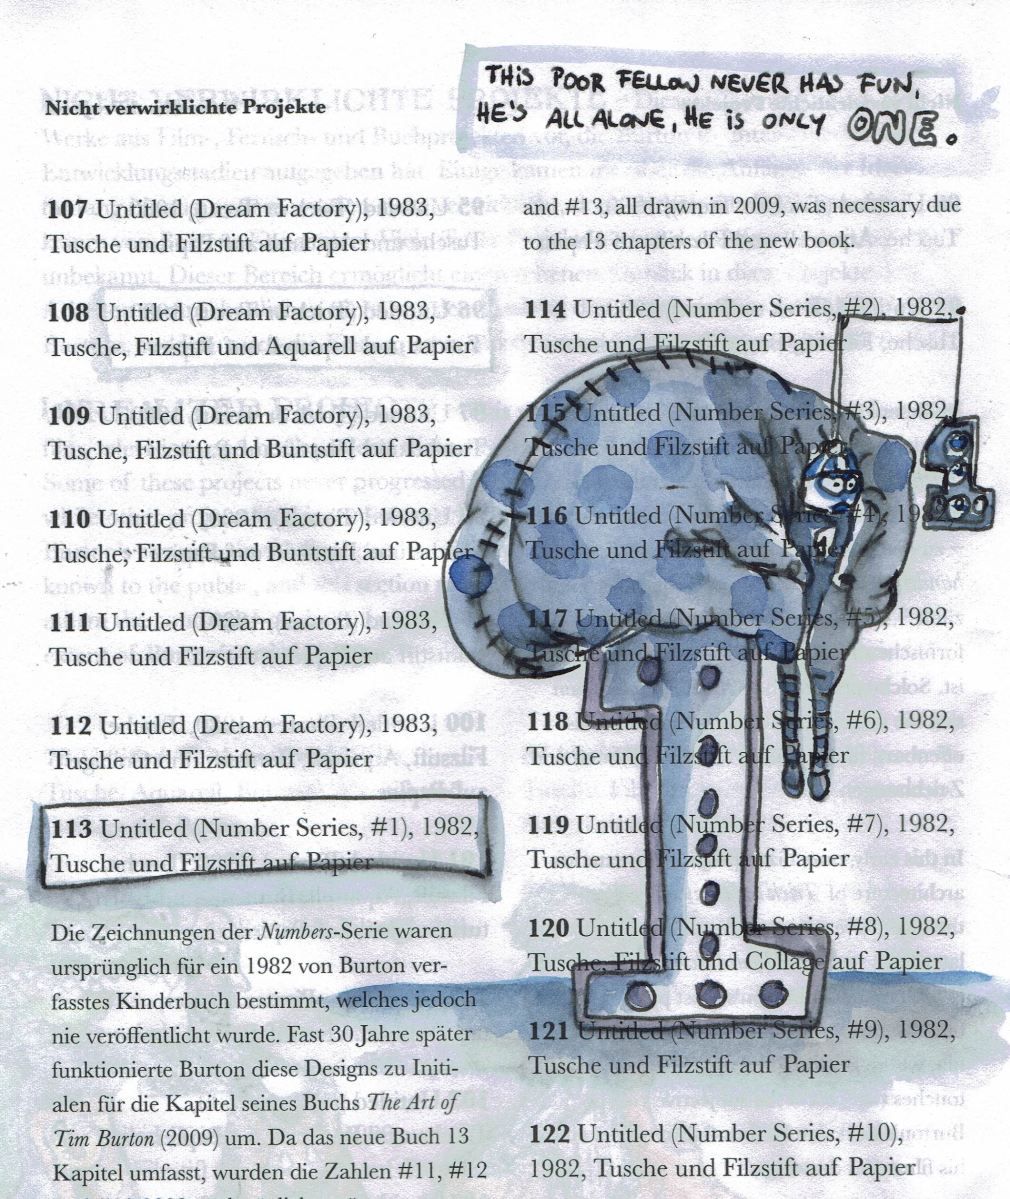 THIS POOR FELLOW NEVER HAS FUN,
HE'S ALL ALONE, HE IS ONLY ONE.
Nicht verwirklichte Projekte
107 Untitled (Dream Factory), 1983,
Tusche und Filzstift auf Papier
108 Untitled (Dream Factory), 1983,
Tusche, Filzstift und Aquarell auf Papier
109 Untitled (Dream Factory), 1983,
Tusche, Filzstift und Buntstift auf Papier
110 Untitled (Dream Factory), 1983,
Tusche, Filzstift und Buntstift auf Papier
111 Untitled (Dream Factory), 1983,
Tusche und Filzstift auf Papier
112 Untitled (Dream Factory), 1983,
Tusche und Filzstift auf Papier
113 Untitled (Number Series, #1), 1982,
Tusche und Filzstift auf Papier
Die Zeichnungen der Numbers-Serie waren
ursprünglich für ein 1982 von Burton ver-
fasstes Kinderbuch bestimmt, welches jedoch
nie veröffentlicht wurde. Fast 30 Jahre später
funktionierte Burton diese Designs zu Initi-
alen für die Kapitel seines Buchs The Art of
Tim Burton (2009) um. Da das neue Buch 13
Kapitel umfasst, wurden die Zahlen #11, #12
and #13, all drawn in 2009, was necessary due
to the 13 chapters of the new book.
114 Untitled (Number Series, #2), 1982,
Tusche und Filzstift auf Papier
115 Untitled (Number Series, #3), 1982,
Tusche und Filzstift auf Papier
116 Untitled (Number Series, #4), 1982,
Tusche und Filzstift auf Papier
117 Untitled (Number Series, #5), 1982,
Tusche und Filzstift auf Papier
118 Untitled (Number Series, #6), 1982,
Tusche und Filzstift auf Papier
119 Untitled (Number Series, #7), 1982,
Tusche und Filzstift auf Papier
120 Untitled (Number Series, #8), 1982,
Tusche, Filzstift und Collage auf Papier
121 Untitled (Number Series, #9), 1982,
Tusche und Filzstift auf Papier
122 Untitled (Number Series, #10),
1982, Tusche und Filzstift auf Papier